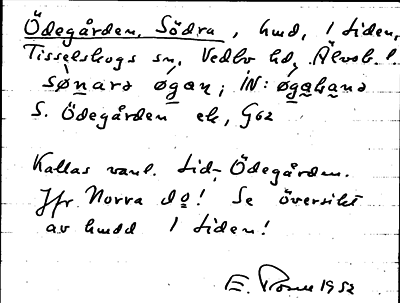 Ödegården, Södra, hmd, 1 Liden,
Tisselskogs sn, Vedbo hd, Älvsb. l.
sø̀narə ǿgan; iN: ǿgahanə
S. Ödegården ek, G62
Kallas vanl. Lid-Ödegården.
Jfr Norra do! Se översikt
av hmdd 1 Liden!
E. 1952